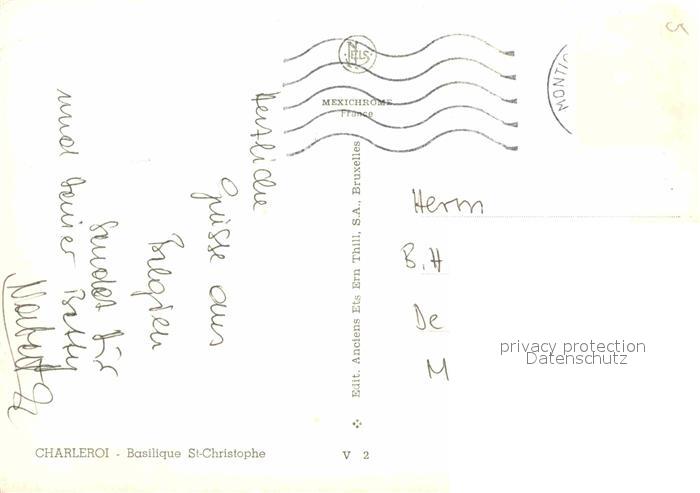 Herzliche
Grüsse aus
Belgien
sendet
und
CHARLEROI - Basilique St-Christophe
NELS
MEXICHROME
France
Edit. Anciens Ets Ern Thill, S.A., Bruxelles
V 2
MONTI
Herrn
B.H
De
M
privacy protection
Datenschutz
5